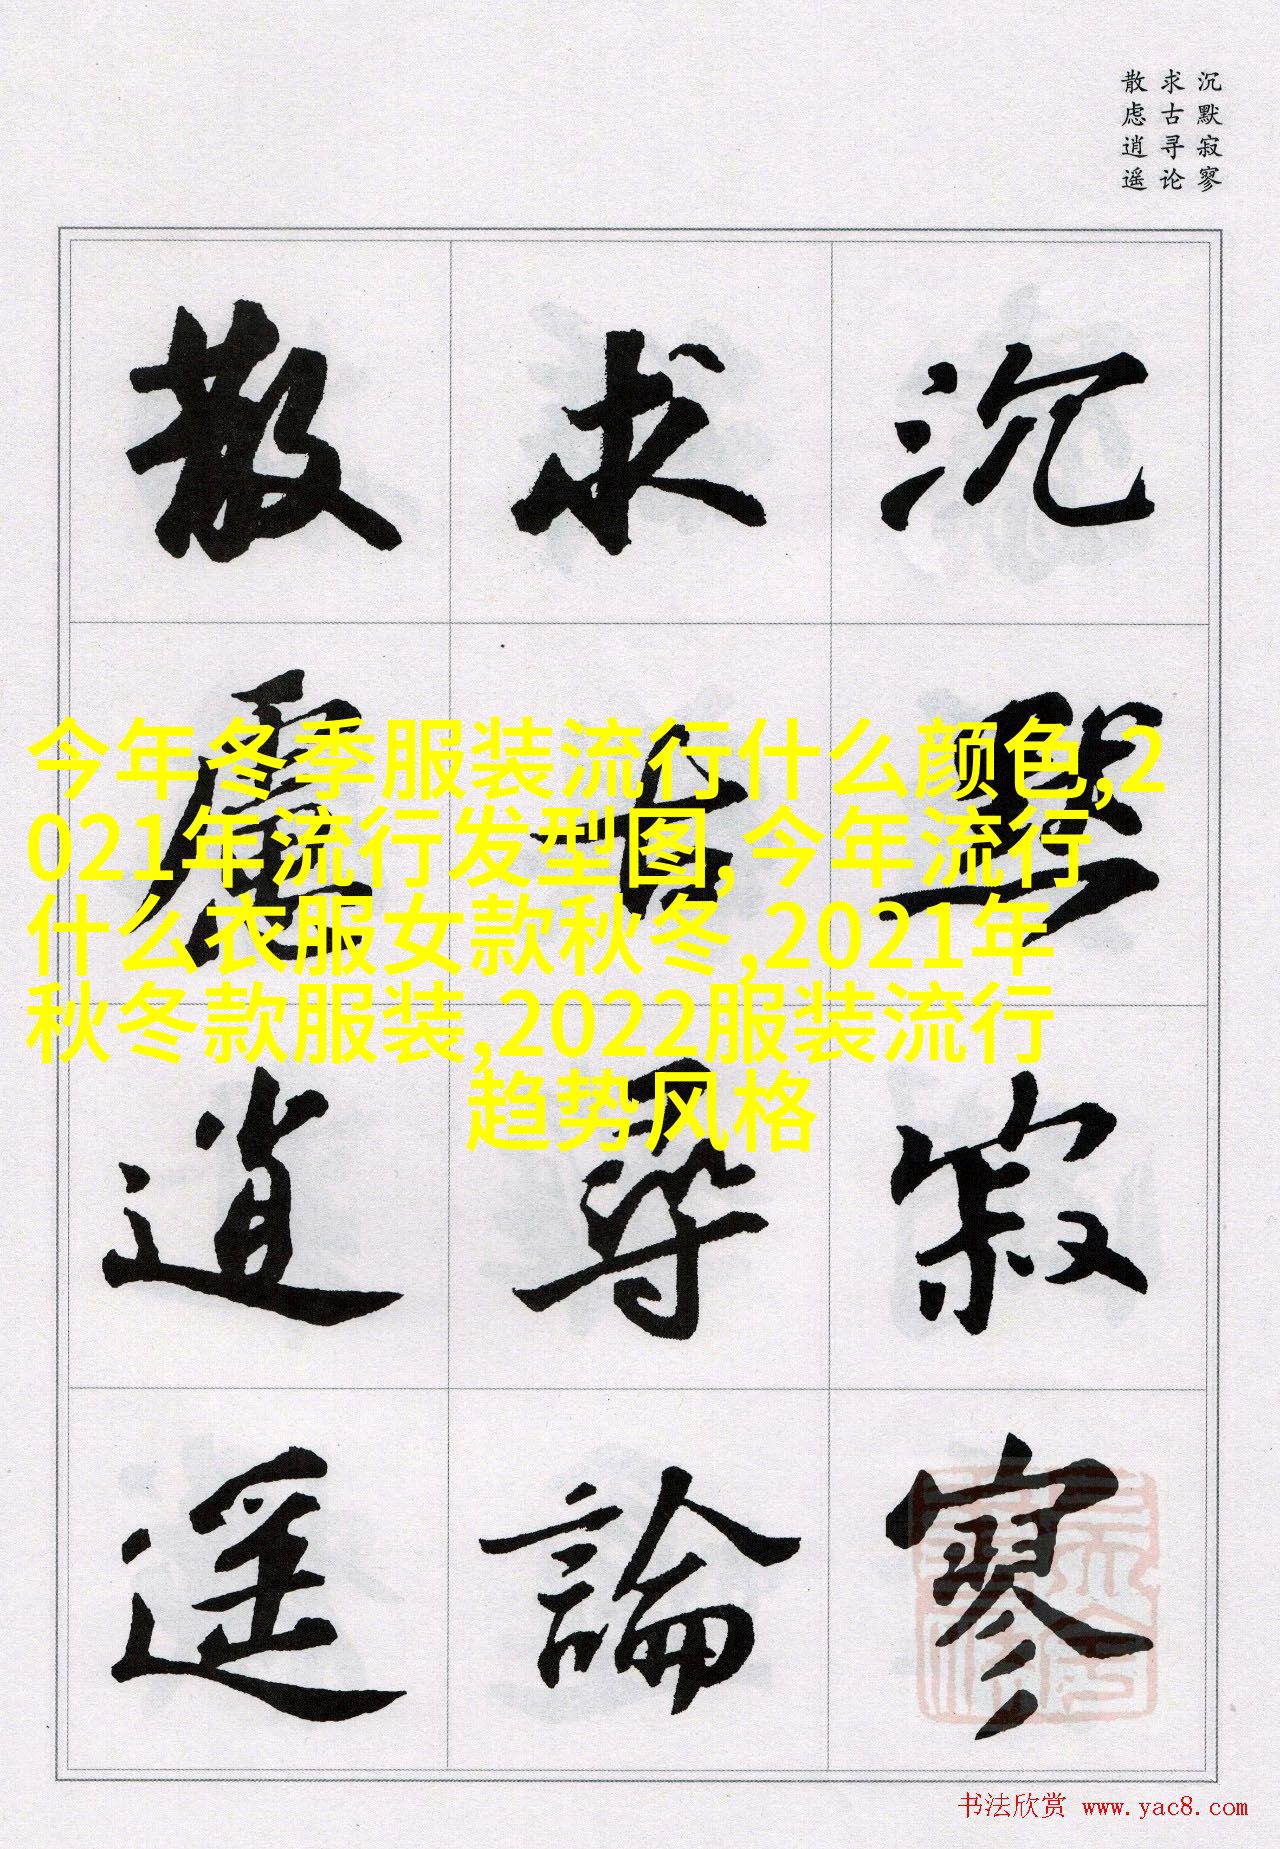 沉默寂寥
求古寻论
散虑逍遥
沉默寂寥
求古尋論
散慮逍遥
今年冬季服装流行什么颜色,2
021年流行发型图,今年流行
什么衣服女款秋冬,2021年
秋冬款服装,2022服装流行
趋势风格
书法欣赏 www.yac8.com